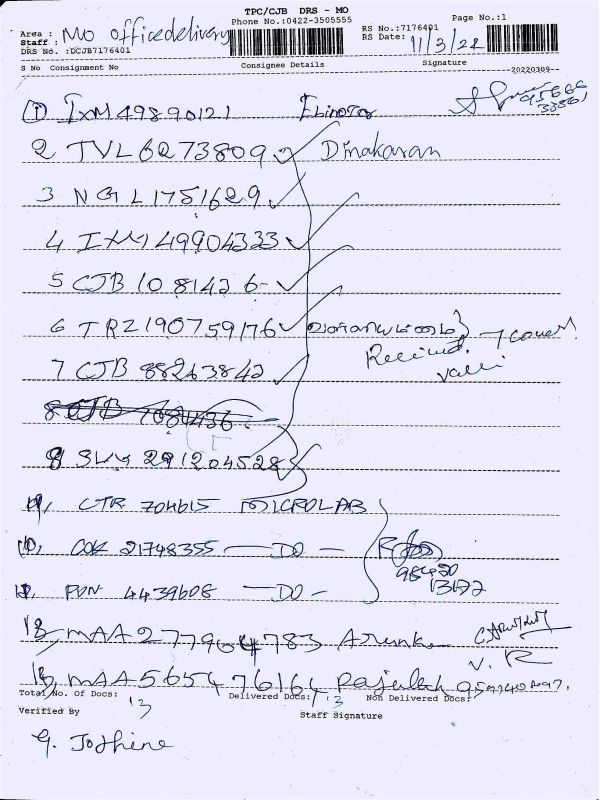 TPC/CJB DRS - MO
Phone No.:0422-3505555
Page No.:1
Area : Mo officedelivery
Staff :
DRS No. :DCJB7176401
RS No.:7176401
RS Date: 11/3/22
S No Consignment No Consignee Details Signature
20220309--
1 IXM 49890121
2 TVL 6273809 Dinakaran
3 NGL 1751629
4 IXM 49904333
5 CJB 1081426
6 TRZ 190759176
Received 7 cover
7 CJB 88263842
valli
8 CJB 1081436
8 SLM 291204528
CTR 704615 MICROLAB
COK 21748355 — DO —
98420
13172
PUN 4439608 — DO —
MAA 277904783 Arunk
V. R
MAA 565476164
Total No. Of Docs: 13 Delivered Docs: 13 Non Delivered Docs:
Verified By Staff Signature
G. Jothine